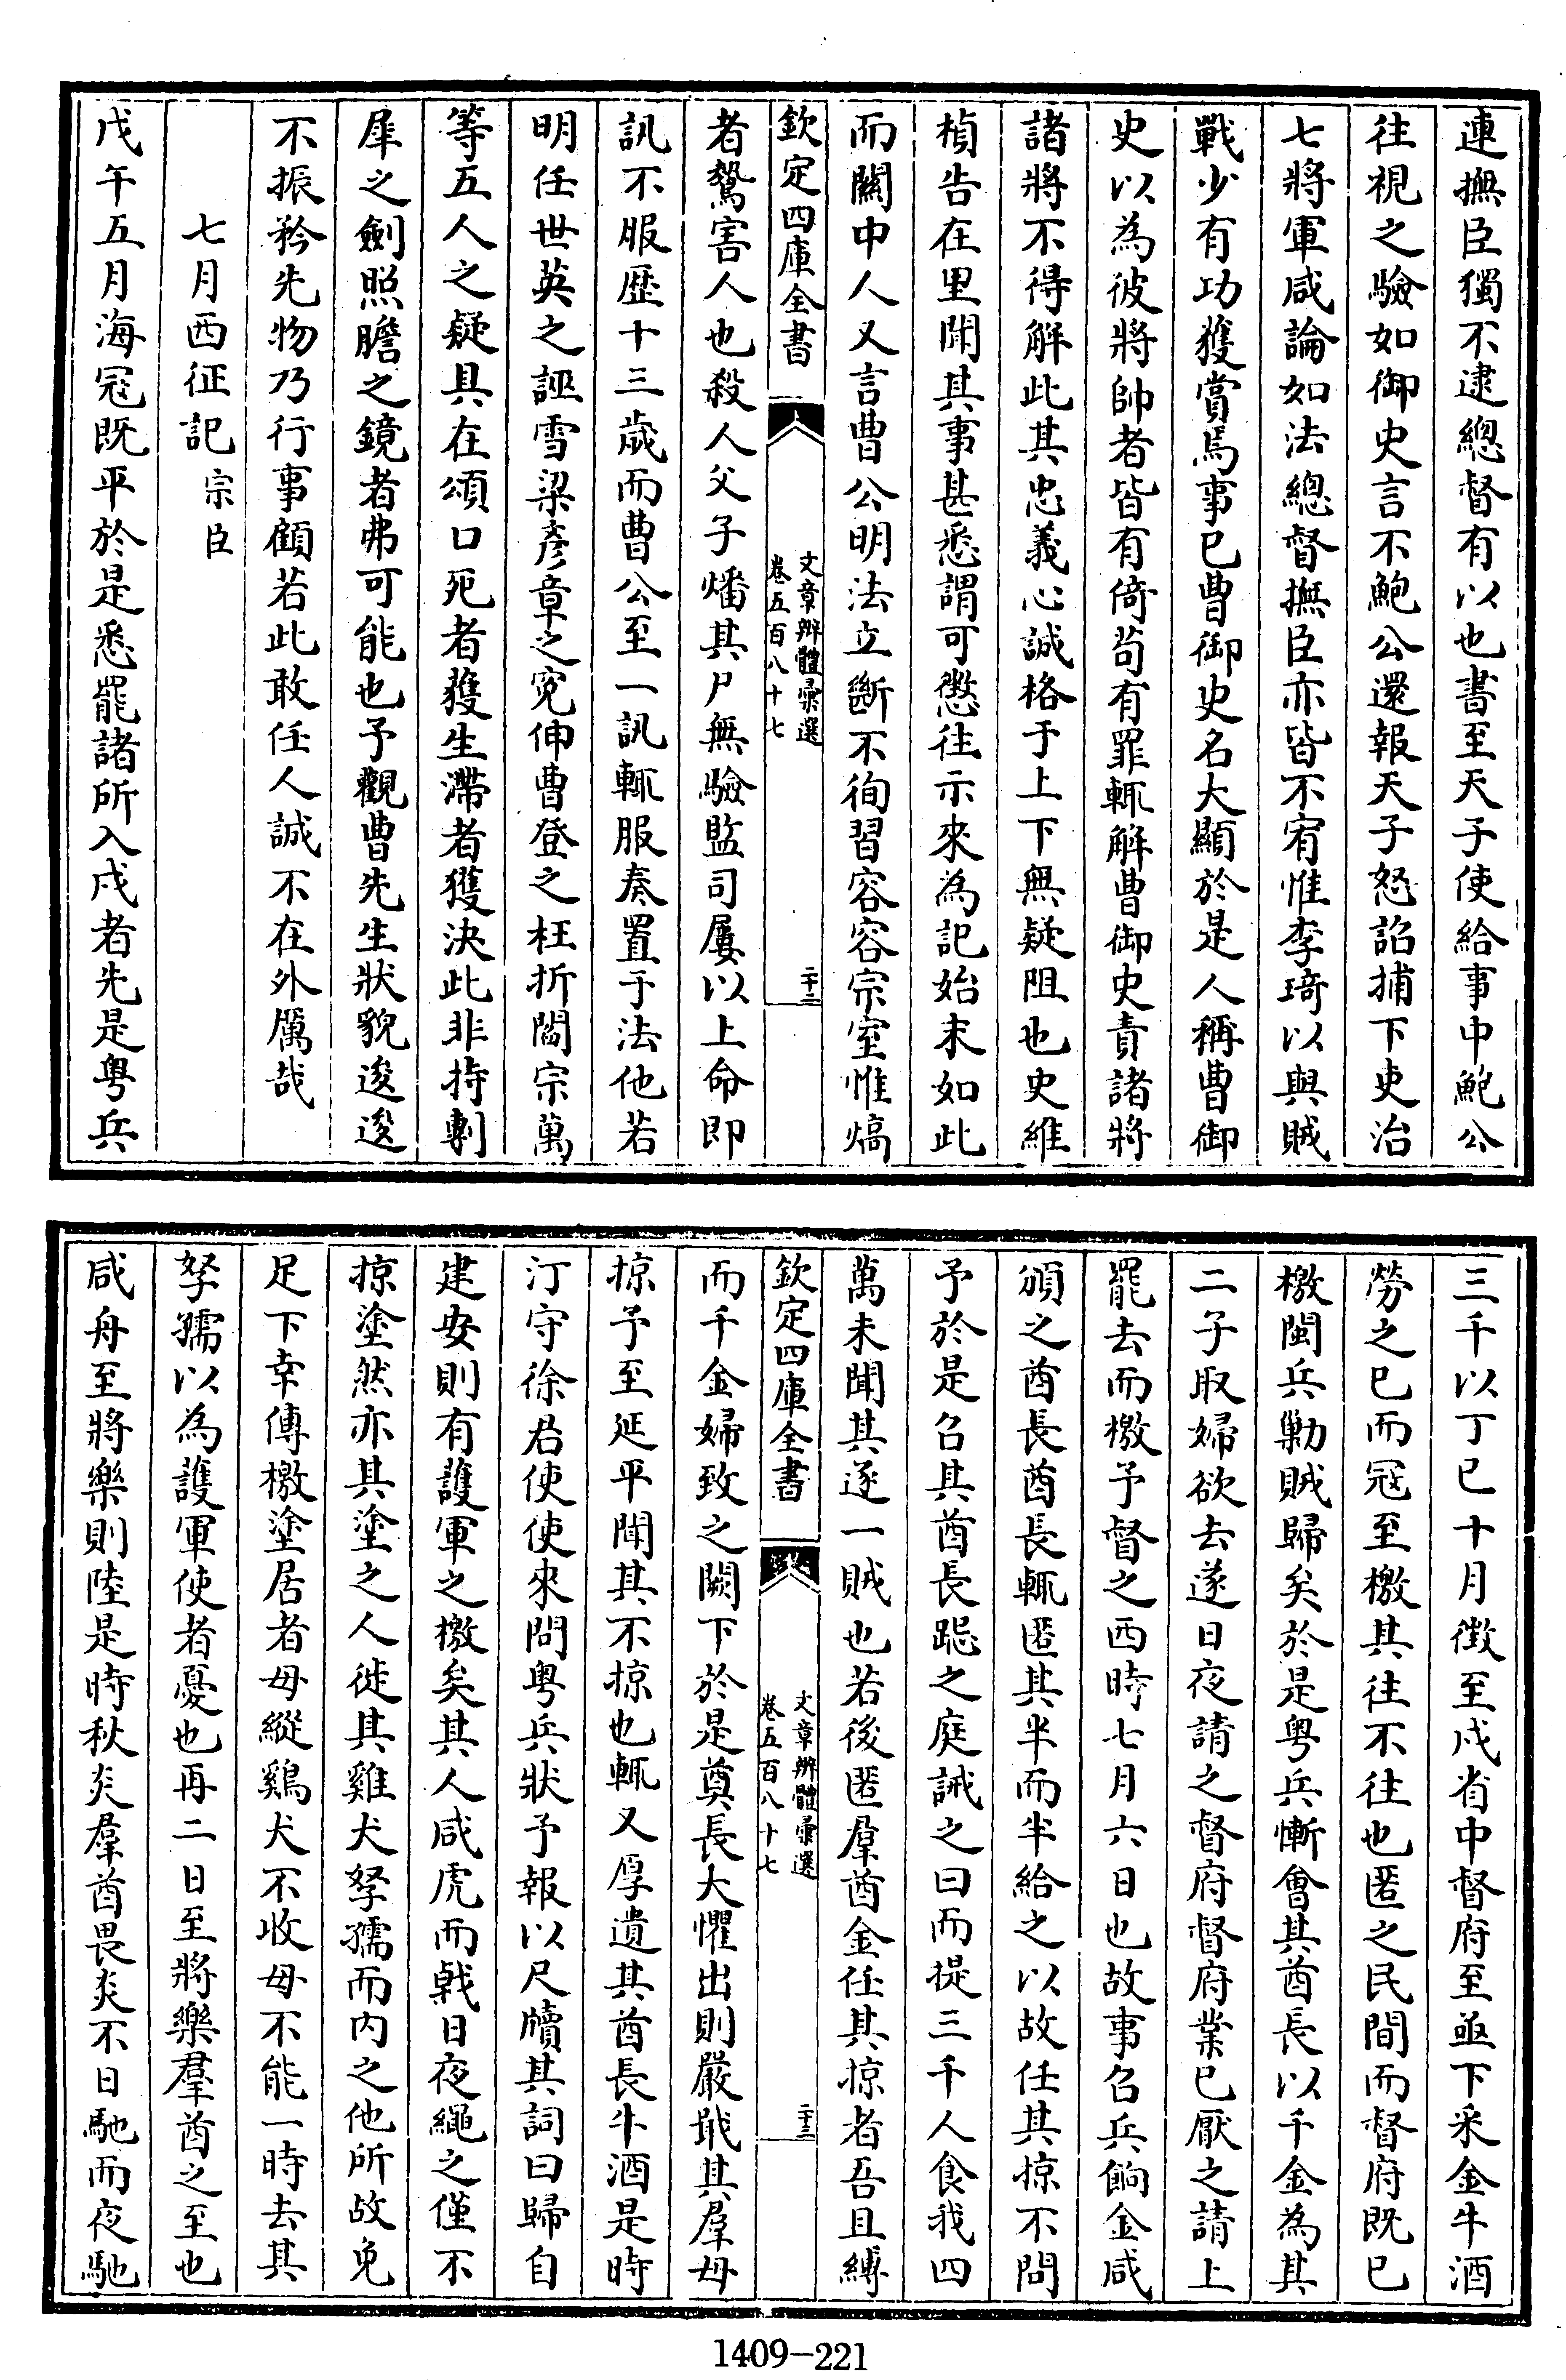 連撫臣獨不逮總督有以也書至天子使給事中鮑公
往視之驗如御史言不鮑公還報天子怒詔捕下吏治
七將軍咸論如法總督撫臣亦皆不宥惟李琦以與賊
戰少有功獲賞焉事已曹御史名大顯於是人稱曹御
史以為彼將帥者皆有倚苟有罪輒解曹御史責諸將
諸將不得解此其忠義心誠格于上下無疑阻也史維
楨告在里聞其事甚悉謂可懲往示來為記始末如此
而關中人又言曹公明法立斷不徇習容容宗室惟熇
欽定四庫全書
文章辨體彙選
卷五百八十七
二十二
者鷙害人也殺人父子燔其尸無驗監司屢以上命即
訊不服歷十三歲而曹公至一訊輒服奏置于法他若
明任世英之誣雪梁彥章之寃伸曹登之枉折閻宗萬
等五人之疑具在頌口死者獲生滯者獲決此非持剸
犀之劍照膽之鏡者弗可能也予觀曹先生狀貌逡逡
不振矜先物乃行事顧若此敢任人誠不在外厲哉
七月西征記 宗臣
戊午五月海冦既平於是悉罷諸所入戍者先是粤兵
三千以丁巳十月徴至戍省中督府至亟下采金牛酒
勞之已而冦至檄其往不往也匿之民間而督府既已
檄閩兵勦賊歸矣於是粤兵慚會其酋長以千金為其
二子取婦欲去遂日夜請之督府督府業已厭之請上
罷去而檄予督之西時七月六日也故事召兵餉金咸
頒之酋長酋長輒匿其半而半給之以故任其掠不問
予於是召其酋長跽之庭誡之曰而提三千人食我四
萬未聞其遂一賊也若後匿羣酋金任其掠者吾且縛
欽定四庫全書
文章辨體彙選
卷五百八十七
二十三
而千金婦致之闕下於是奠長大懼出則嚴戢其羣毋
掠予至延平聞其不掠也輒又厚遺其酋長牛酒是時
汀守徐君使使來問粤兵狀予報以尺牘其詞曰歸自
建安則有護軍之檄矣其人咸虎而戟日夜繩之僅不
掠塗然亦其塗之人徙其雞犬孥孺而内之他所故免
足下幸傳檄塗居者毋縱鷄犬不收毋不能一時去其
孥孺以為護軍使者憂也再二日至將樂羣酋之至也
咸舟至將樂則陸是時秋炎羣酋畏炎不日馳而夜馳
1409-221